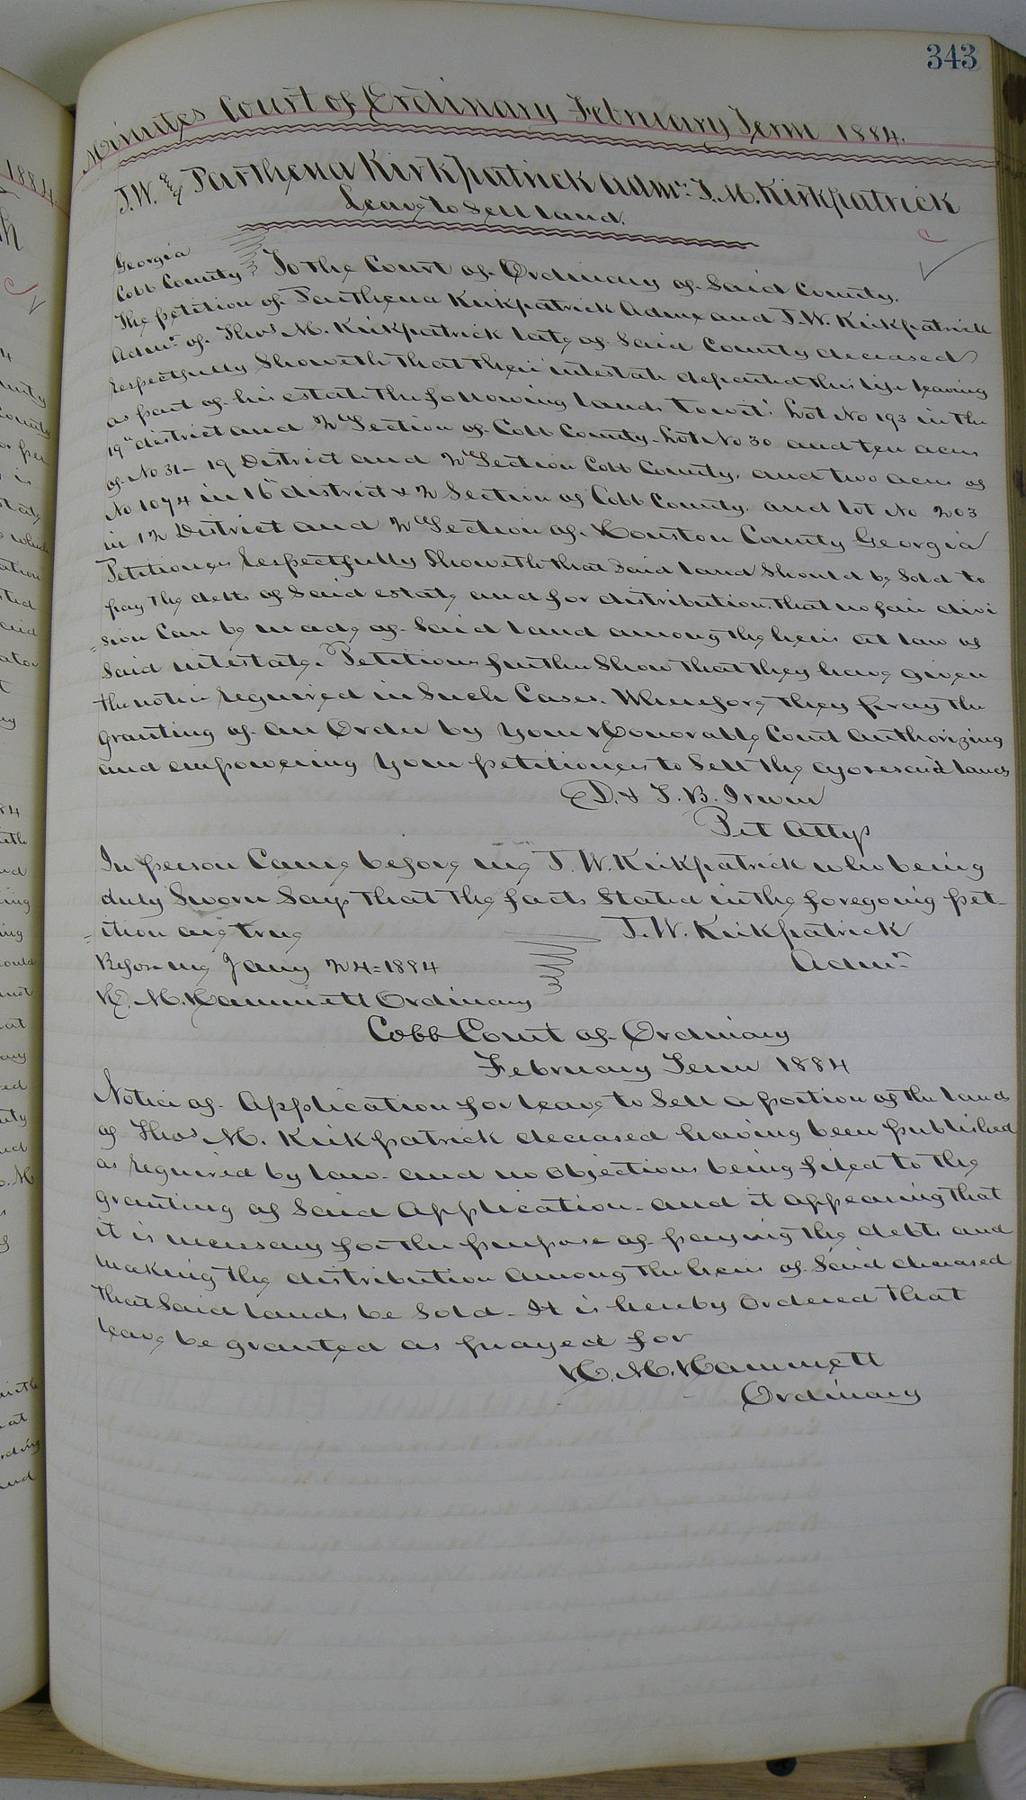 343
Minutes Court of Ordinary February Term 1884.
J.W. & Parthena Kirkpatrick Admr. T.M. Kirkpatrick
Leave to Sell land.
Georgia
Cobb County To the Court of Ordinary of Said County.
The petition of Parthena Kirkpatrick Admx and J.W. Kirkpatrick
Admr of Thos M. Kirkpatrick late of Said County deceased
respectfully Showeth that their intestate departed this life leaving
as part of his estate the following lands to wit: Lot No 193 in the
19th district and 2nd Section of Cobb County - Lot No 30 and ten acres
of No 31 - 19 District and 2nd Section Cobb County, and two acres of
No 1074 in 16th district & 2 Section of Cobb County. and lot No 203
in 12 District and 2nd Section of Houston County Georgia
Petitioners respectfully Showeth that Said land Should be Sold to
pay the debts of Said estate and for distribution, that no fair divi
=sion can be made of Said land among the heirs at law of
Said intestate. Petitioners further Show that they have given
the notice required in Such Cases. Wherefore they pray the
granting of an Order by Your Honorable Court authorizing
and empowering Your petitioners to Sell the aforesaid lands
D. & T. B. Irwin
Pet Attys
In person Came before me J. W. Kirkpatrick who being
duly Sworn Says that the facts Stated in the foregoing pet-
=ition are true J. W. Kirkpatrick
Before me Jany 24=1884 Admr
H. M. Hammett Ordinary
Cobb Court of Ordinary
February Term 1884
Notice of Application for leave to Sell a portion of the lands
of Thos M. Kirkpatrick deceased having been published
as required by law - and no objections being filed to the
granting of Said Application - and it appearing that
it is necessary for the purpose of paying the debts and
making the distribution among the heirs of Said deceased
that Said lands be Sold - It is hereby Ordered that
leave be granted as prayed for
H. M. Hammett
Ordinary